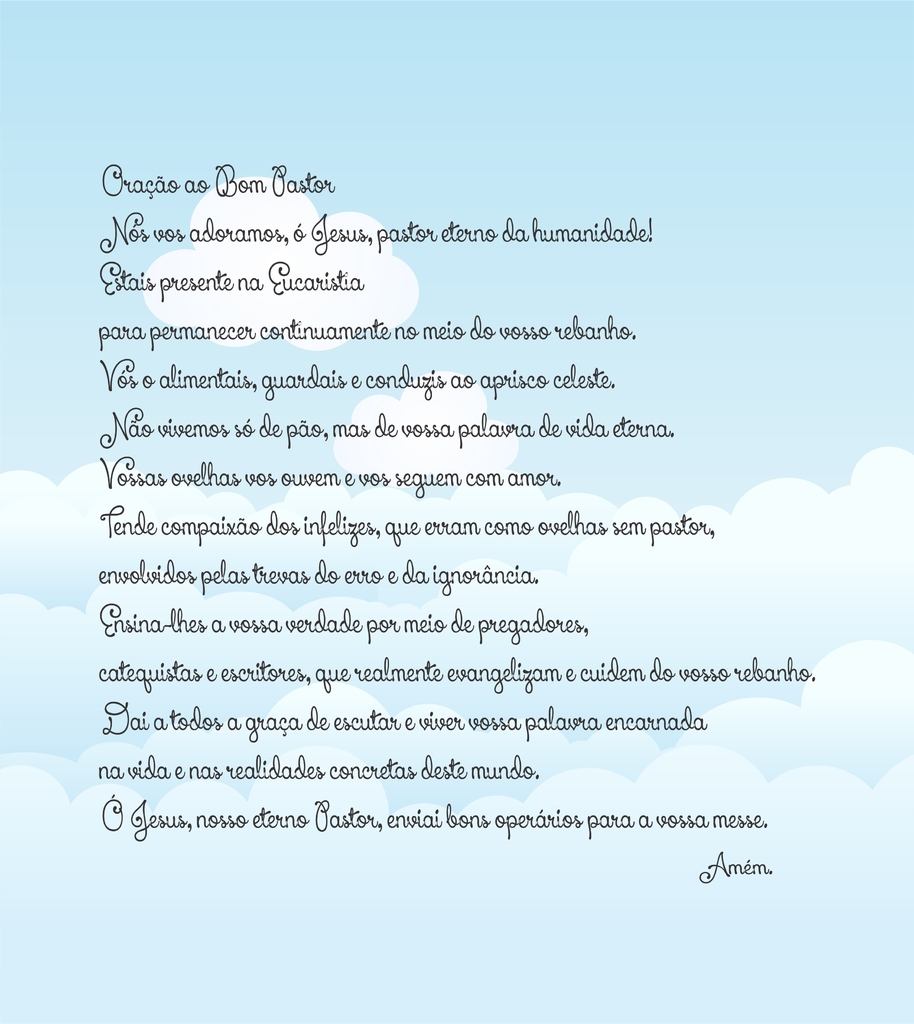 Oração ao Bom Pastor
Nós vos adoramos, ó Jesus, pastor eterno da humanidade!
Estais presente na Eucaristia
para permanecer continuamente no meio do vosso rebanho.
Vós o alimentais, guardais e conduzis ao aprisco celeste.
Não vivemos só de pão, mas de vossa palavra de vida eterna.
Vossas ovelhas vos ouvem e vos seguem com amor.
Tende compaixão dos infelizes, que erram como ovelhas sem pastor,
envolvidos pelas trevas do erro e da ignorância.
Ensina-lhes a vossa verdade por meio de pregadores,
catequistas e escritores, que realmente evangelizam e cuidem do vosso rebanho.
Dai a todos a graça de escutar e viver vossa palavra encarnada
na vida e nas realidades concretas deste mundo.
Ó Jesus, nosso eterno Pastor, enviai bons operários para a vossa messe.
Amém.